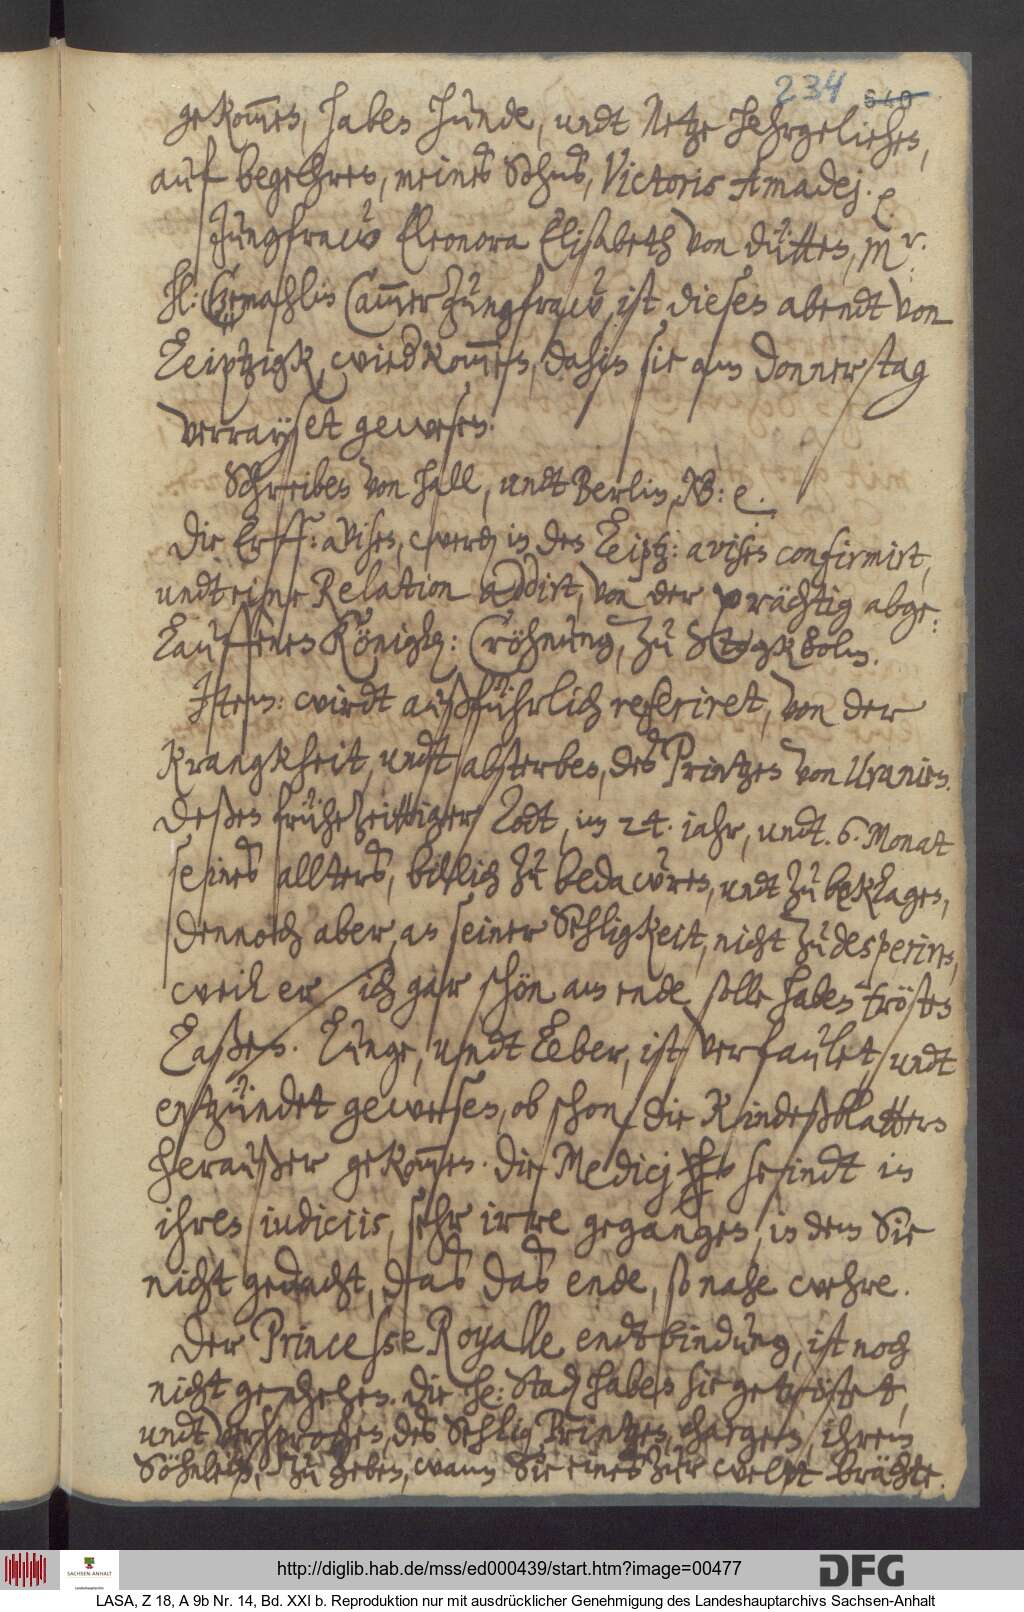 234 640
gekom̄en, haben hunde, undt Netze hehrgeliehen,
auf begehren, meines Sohns, Victoris Amadej. e
Jungfraw Eleonora Elisabeth von Dütten, Mr.
H: Gemahlin Cam̄er Jungfraw, ist diesen abendt von
Leiptzigk, wied kom̄en, dahin sie am Donnerstag
verrayset gewesen.
Schreiben von Hall, undt Berlin, NB: e.
Die Erff: avisen, werden in den Leiptz: avisen confirmirt,
undt eine Relation addirt, von der prächtig abge:
Lauffenen Königl: Cröhnung, zu Stogkholm.
Item: wirdt außführlich referiret, von der
Krangkheit, undt absterben, des Printzen von Uranien.
Deßen frühezeittiger Todt, im 24. iahr, undt. 6. Monat
seines allters, billich zu bedawren, undt zu beklagen,
dennoch aber, an seiner Sehligkeit, nicht zu desperiren,
weil er sich gar schön am ende solle haben trösten
Laßen. Lunge, undt Leber, ist verfaulet, undt
entzündet gewesen, ob schon die Kindeßblattern
heraußer gekom̄en. Die Medicj seindt in
ihren iudiciis, sehr irre gegangen, in dem Sie
nicht gedacht, das das ende, so nahe wehre.
Der Princesse Royalle endtbindung, ist noch
nicht geschehen. Die He: Stad haben sie getröstet,
undt versprochen, des Sehlig Printzen, chargen, ihrem
Söhnlein, zu geben, wann Sie eines zur welt brächte.
http://diglib.hab.de/mss/ed000439/start.htm?image=00477
SACHSEN-ANHALT
DFG
LASA, Z 18, A 9b Nr. 14, Bd. XXI b. Reproduktion nur mit ausdrücklicher Genehmigung des Landeshauptarchivs Sachsen-Anhalt